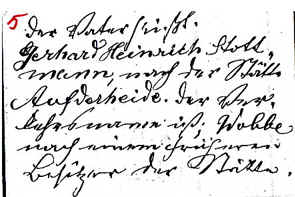 5
der Vater heißt.
Gerhard Heinrich Stott-
mann, nach der Stätte
Aufderheide. der Ver-
kehrsname ist, Wobbe
nach einem früheren
Besitzer der Stätte.